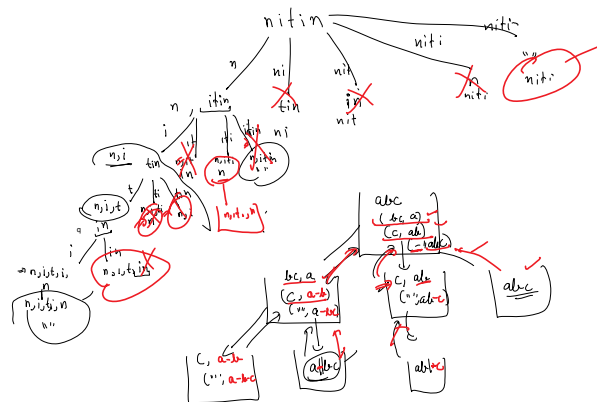 nitin
n
ni
nit
niti
niti
n
itin
tin
in
nit
n
niti
" "
niti
i
it
iti
itin
ni
n,i
tin
n,iti
n
" "
n,i,t
t
ti
in
n,iti,n
i
in
n,i,t,i,
n
n,i,t,in
n,i,t,i,n
" "
abc
(bc, a)
(c, ab)
bc, a
(c, a-b)
("", a-bc)
c, ab
("", ab-c)
abc
c, a-b
("", a-b-c)
a|bc
ab|c